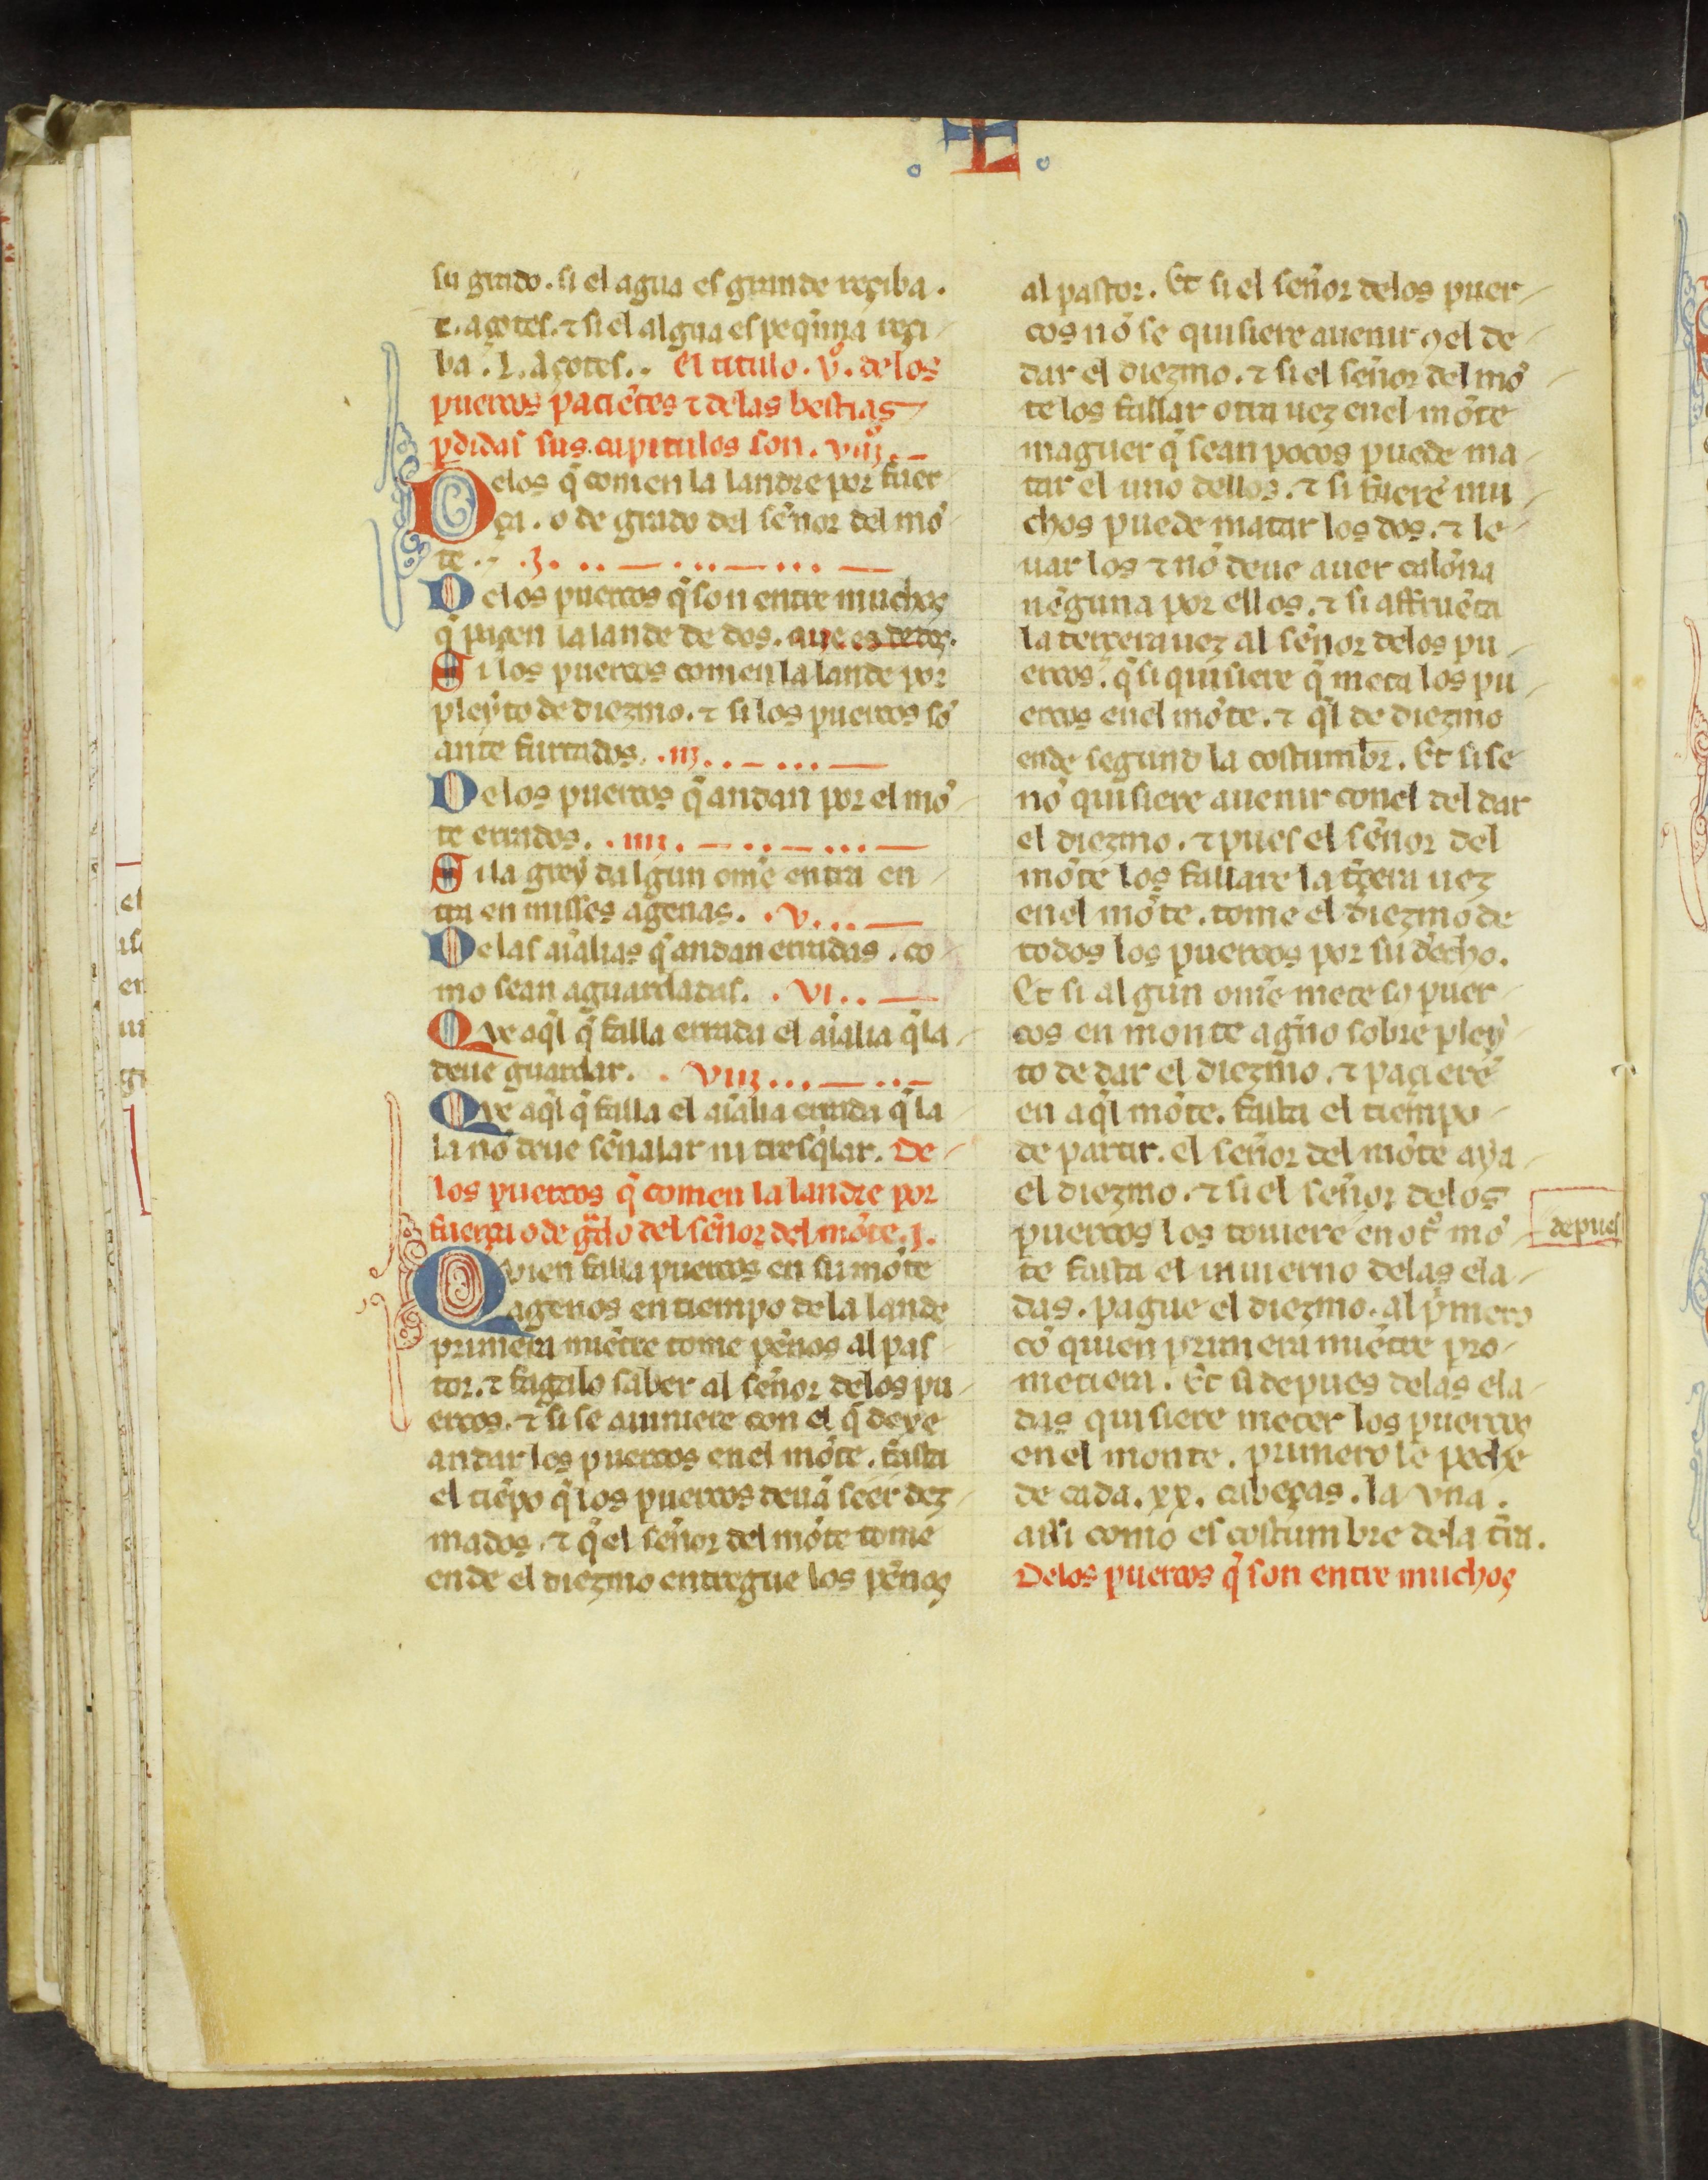 L
su grado. si el agua es grande reçiba.
c. açotes. ⁊ si el algua es peq̃nna reçi
ba. L. açotes.. El titulo. vº. delos
puercos paciẽtes ⁊ delas bestias
ꝑdidas sus capitulos son. viijº.
Delos q̃ comen la landre por fuer
ça. o de grado del sẽnor del mõ
te.. .j.
Delos puercos q̃ son entre muchos
q̃ pagen la lande de dos. que es de dos.
Si los puercos comen la lande por
pleyto de diezmo. ⁊ si los puercos sõ
ante furtados. .iij.
Delos puercos q̃ andan por el mõ
te errados. .iiij.
Si la grey dalgun omẽ entra en
tra en misses agenas. .v.
Delas aĩalias q̃ andan erradas. co
mo sean aguardadas. .vi.
Que aq̃l q̃ falla errada el aĩalia q̃ la
deue guardar. . viij
Que aq̃l q̃ falla el aĩalia errada q̃ la
la nõ deue sẽnalar ni tresq̃lar. De
los puercos q̃ comen la landre por
fuerça o de g̃do del sẽnor del mõte. j.
Quien falla puercos en su mõte
agenos en tiempo de la lande
primera miẽtre tome pẽnos al pas
tor. ⁊ fagalo saber al sẽnor delos pu
ercos. ⁊ si se auiniere con el q̃ dexe
andar los puercos en el mõte. fasta
el tiẽpo q̃ los puercos deuã seer dez
mados. ⁊ q̃ el sẽnor del mõte tome
ende el diezmo entregue los pẽnos
al pastor. Et si el señor delos puer
cos nõ se quisiere auenir ꝯ el de
dar el diezmo. ⁊ si el sẽnor del mõ
te los fallar otra uez en el mõte
maguer q̃ sean pocos puede ma
tar el uno dellos. ⁊ si fuerẽ mu
chos puede matar los dos. ⁊ le
uar los ⁊ nõ deue auer calõna
nẽguna por ellos. ⁊ si affruẽta
la terçera uez al sẽnor delos pu
ercos. q̃ si quisiere q̃ meta los pu
ercos en el mõte. ⁊ q̃l de diezmo
ende segund la costumbr̃. Et si se
nõ quisiere auenir con el del dar
el diezmo. ⁊ pues el sẽnor del
mõte los fallare la t̃çera uez
en el mõte. tome el diezmo de
todos los puercos por su dẽcho.
Et si algun omẽ mete so puer
cos en monte ag̃no sobre pley
to de dar el diezmo. ⁊ paçierẽ
en aq̃l mõte. fasta el tiẽmpo
de partir. el señor del mõte aya
el diezmo. ⁊ si el señor delos
puercos los touiere en ot̃ mõ
depues
te fasta el inuierno delas ela
das. pague el diezmo. al p̃mero
cõ quien primera miẽtre pro
metiera. Et si depues delas ela
das quisiere meter los puercos
en el monte. primero le peche
de cada. xx. cabeças. la vna.
assi como es costumbre dela t̃ra.
Delos puercos q̃ son entre muchos